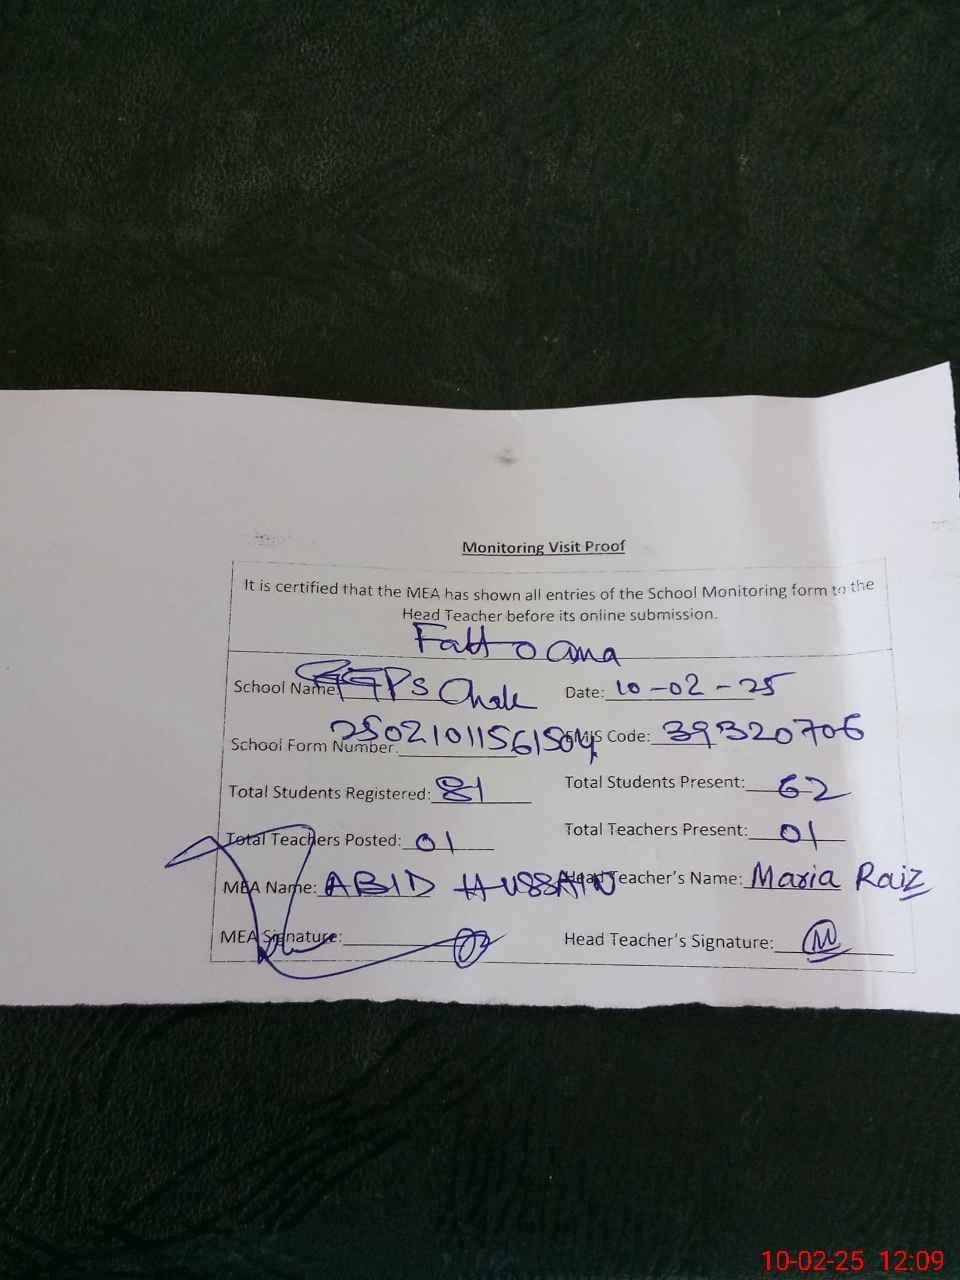 Monitoring Visit Proof
It is certified that the MEA has shown all entries of the School Monitoring form to the
Head Teacher before its online submission.
Fattoana
School Name: GGPS Chak Date: 10-02-25
School Form Number: 25021011561504 EMIS Code: 39320706
Total Students Registered: 81 Total Students Present: 62
Total Teachers Posted: 01 Total Teachers Present: 01
MEA Name: ABID HUSSAIN Head Teacher's Name: Maria Raiz
MEA Signature: Head Teacher's Signature: M
10-02-25 12:09